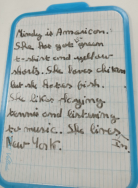 Mindy is American.
She has got green
t-shirt and yellow
shorts. She loves chicken
but she hates fish.
She likes playing
tennis and listening
to music. She lives
in
New York.